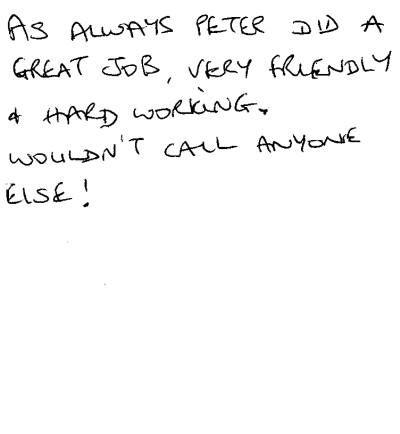 AS ALWAYS PETER DID A
GREAT JOB, VERY FRIENDLY
& HARD WORKING.
WOULDN'T CALL ANYONE
ELSE!